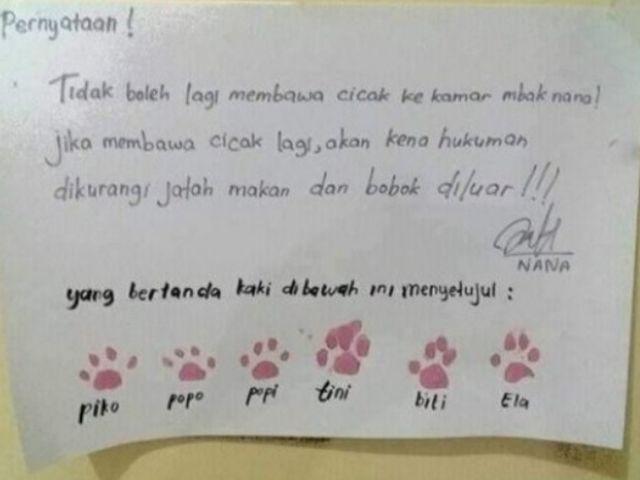 Pernyataan!
Tidak boleh lagi membawa cicak ke kamar mbak nana!
jika membawa cicak lagi, akan kena hukuman
dikurangi jatah makan dan bobok diluar!!!
NANA
yang bertanda kaki dibawah ini menyetujui :
piko popo popi tini biti Ela